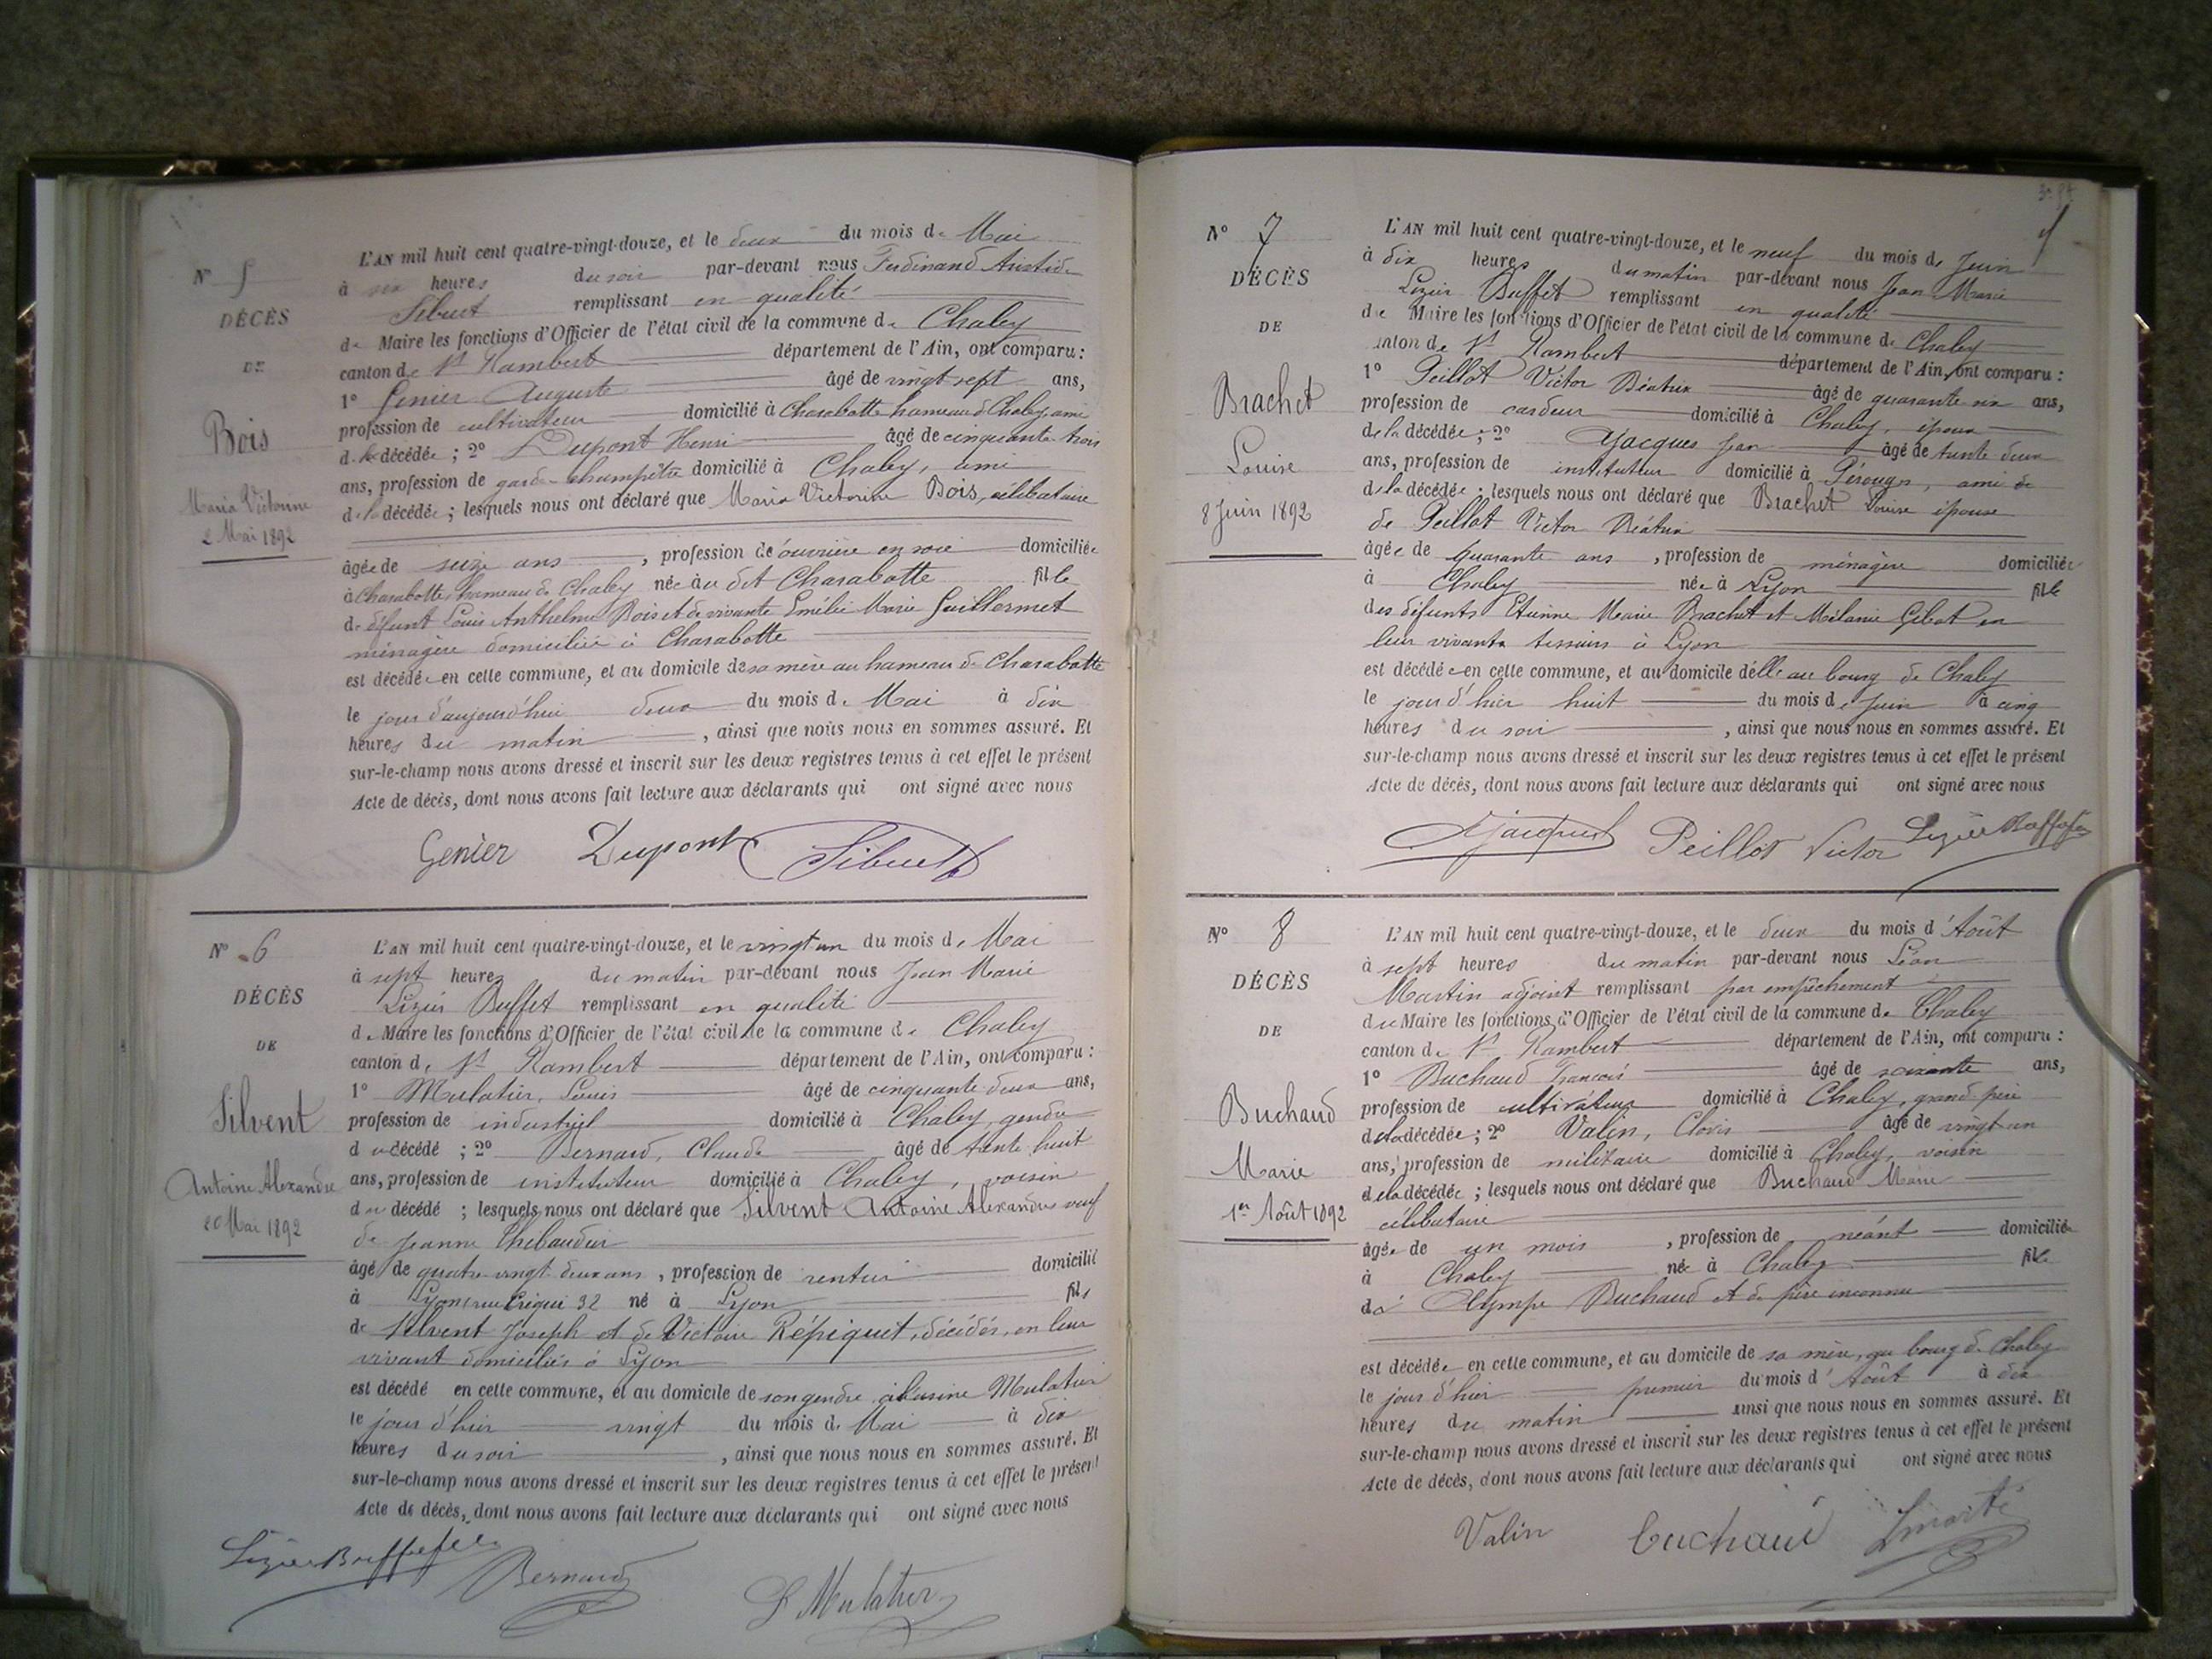 N° 5
DÉCÈS
DE
Bois
Maria Victorine
2 Mai 1892
L'AN mil huit cent quatre-vingt-douze, et le deux du mois de Mai
à six heures du soir par-devant nous Ferdinand Aristide
Sibuet remplissant en qualité
de Maire les fonctions d'Officier de l'état civil de la commune de Chaley
canton de St Rambert département de l'Ain, ont comparu :
1° Genier Auguste âgé de vingt sept ans,
profession de cultivateur domicilié à Charabotte hameau de Chaley, ami
de la décédée ; 2° Dupont Henri âgé de cinquante trois
ans, profession de garde-champêtre domicilié à Chaley, ami
de la décédée ; lesquels nous ont déclaré que Maria Victorine Bois, célibataire
âgée de seize ans, profession de ouvrière en soie domiciliée
à Charabotte hameau de Chaley née au dit Charabotte fille
de défunt Louis Anthelme Bois et de vivante Emélie Marie Guillermet
ménagère domiciliée à Charabotte
est décédée en cette commune, et au domicile de sa mère au hameau de Charabotte
le jour d'aujourd'hui deux du mois de Mai à dix
heures du matin, ainsi que nous nous en sommes assuré. Et
sur-le-champ nous avons dressé et inscrit sur les deux registres tenus à cet effet le présent
Acte de décès, dont nous avons fait lecture aux déclarants qui ont signé avec nous
Genier Dupont Sibuet
N° 6
DÉCÈS
DE
Silvent
Antoine Alexandre
20 Mai 1892
L'AN mil huit cent quatre-vingt-douze, et le vingt un du mois de Mai
à sept heures du matin par-devant nous Jean Marie
Lizier Buffet remplissant en qualité
de Maire les fonctions d'Officier de l'état civil de la commune de Chaley
canton de St Rambert département de l'Ain, ont comparu :
1° Mulatier, Louis âgé de cinquante deux ans,
profession de industriel domicilié à Chaley, gendre
du décédé ; 2° Bernard, Claude âgé de trente huit
ans, profession de instituteur domicilié à Chaley, voisin
du décédé ; lesquels nous ont déclaré que Silvent Antoine Alexandre veuf
de Jeanne
âgé de quatre-vingt deux ans, profession de rentier domicilié
à Lyon, rue Créqui 32 né à Lyon fils
de Silvent Joseph et de Victoire Répiquet, décédés, en leur
vivant domiciliés à Lyon
est décédé en cette commune, et au domicile de son gendre, à l'usine Mulatier
le jour d'hier vingt du mois de Mai à dix
heures du soir, ainsi que nous nous en sommes assuré. Et
sur-le-champ nous avons dressé et inscrit sur les deux registres tenus à cet effet le présent
Acte de décès, dont nous avons fait lecture aux déclarants qui ont signé avec nous
Bernard L Mulatier
N° 7
DÉCÈS
DE
Brachet
Louise
8 Juin 1892
L'AN mil huit cent quatre-vingt-douze, et le neuf du mois de Juin
à dix heures du matin par-devant nous Jean Marie
Lizier Buffet remplissant en qualité
de Maire les fonctions d'Officier de l'état civil de la commune de Chaley
canton de St Rambert département de l'Ain, ont comparu :
1° Peillot Victor Béatrix âgé de quarante six ans,
profession de cardeur domicilié à Chaley, époux
de la décédée ; 2° Yacques Jean âgé de trente deux
ans, profession de instituteur domicilié à Pérouges, ami de
de la décédée ; lesquels nous ont déclaré que Brachet Louise épouse
de Peillot Victor Béatrix
âgée de quarante ans, profession de ménagère domiciliée
à Chaley née à Lyon fille
des défunts Etienne Marie Brachet et Mélanie Gibot en
leur vivants tisseurs à Lyon
est décédée en cette commune, et au domicile d'elle au bourg de Chaley
le jour d'hier huit du mois de Juin à cinq
heures du soir, ainsi que nous nous en sommes assuré. Et
sur-le-champ nous avons dressé et inscrit sur les deux registres tenus à cet effet le présent
Acte de décès, dont nous avons fait lecture aux déclarants qui ont signé avec nous
Peillot Victor
N° 8
DÉCÈS
DE
Buchaud
Marie
1er Août 1892
L'AN mil huit cent quatre-vingt-douze, et le deux du mois d'Août
à sept heures du matin par-devant nous Léon
Martin adjoint remplissant par empêchement
du Maire les fonctions d'Officier de l'état civil de la commune de Chaley
canton de St Rambert département de l'Ain, ont comparu :
1° Buchaud François âgé de soixante ans,
profession de cultivateur domicilié à Chaley, grand père
de la décédée ; 2° Valin, Clovis âgé de vingt un
ans, profession de militaire domicilié à Chaley, voisin
de la décédée ; lesquels nous ont déclaré que Buchaud Marie
célibataire
âgée de un mois, profession de néant domiciliée
à Chaley née à Chaley fille
de Olympe Buchaud et de père inconnu
est décédée en cette commune, et au domicile de sa mère, au bourg de Chaley
le jour d'hier premier du mois d'Août à dix
heures du matin ainsi que nous nous en sommes assuré. Et
sur-le-champ nous avons dressé et inscrit sur les deux registres tenus à cet effet le présent
Acte de décès, dont nous avons fait lecture aux déclarants qui ont signé avec nous
Valin Buchaud